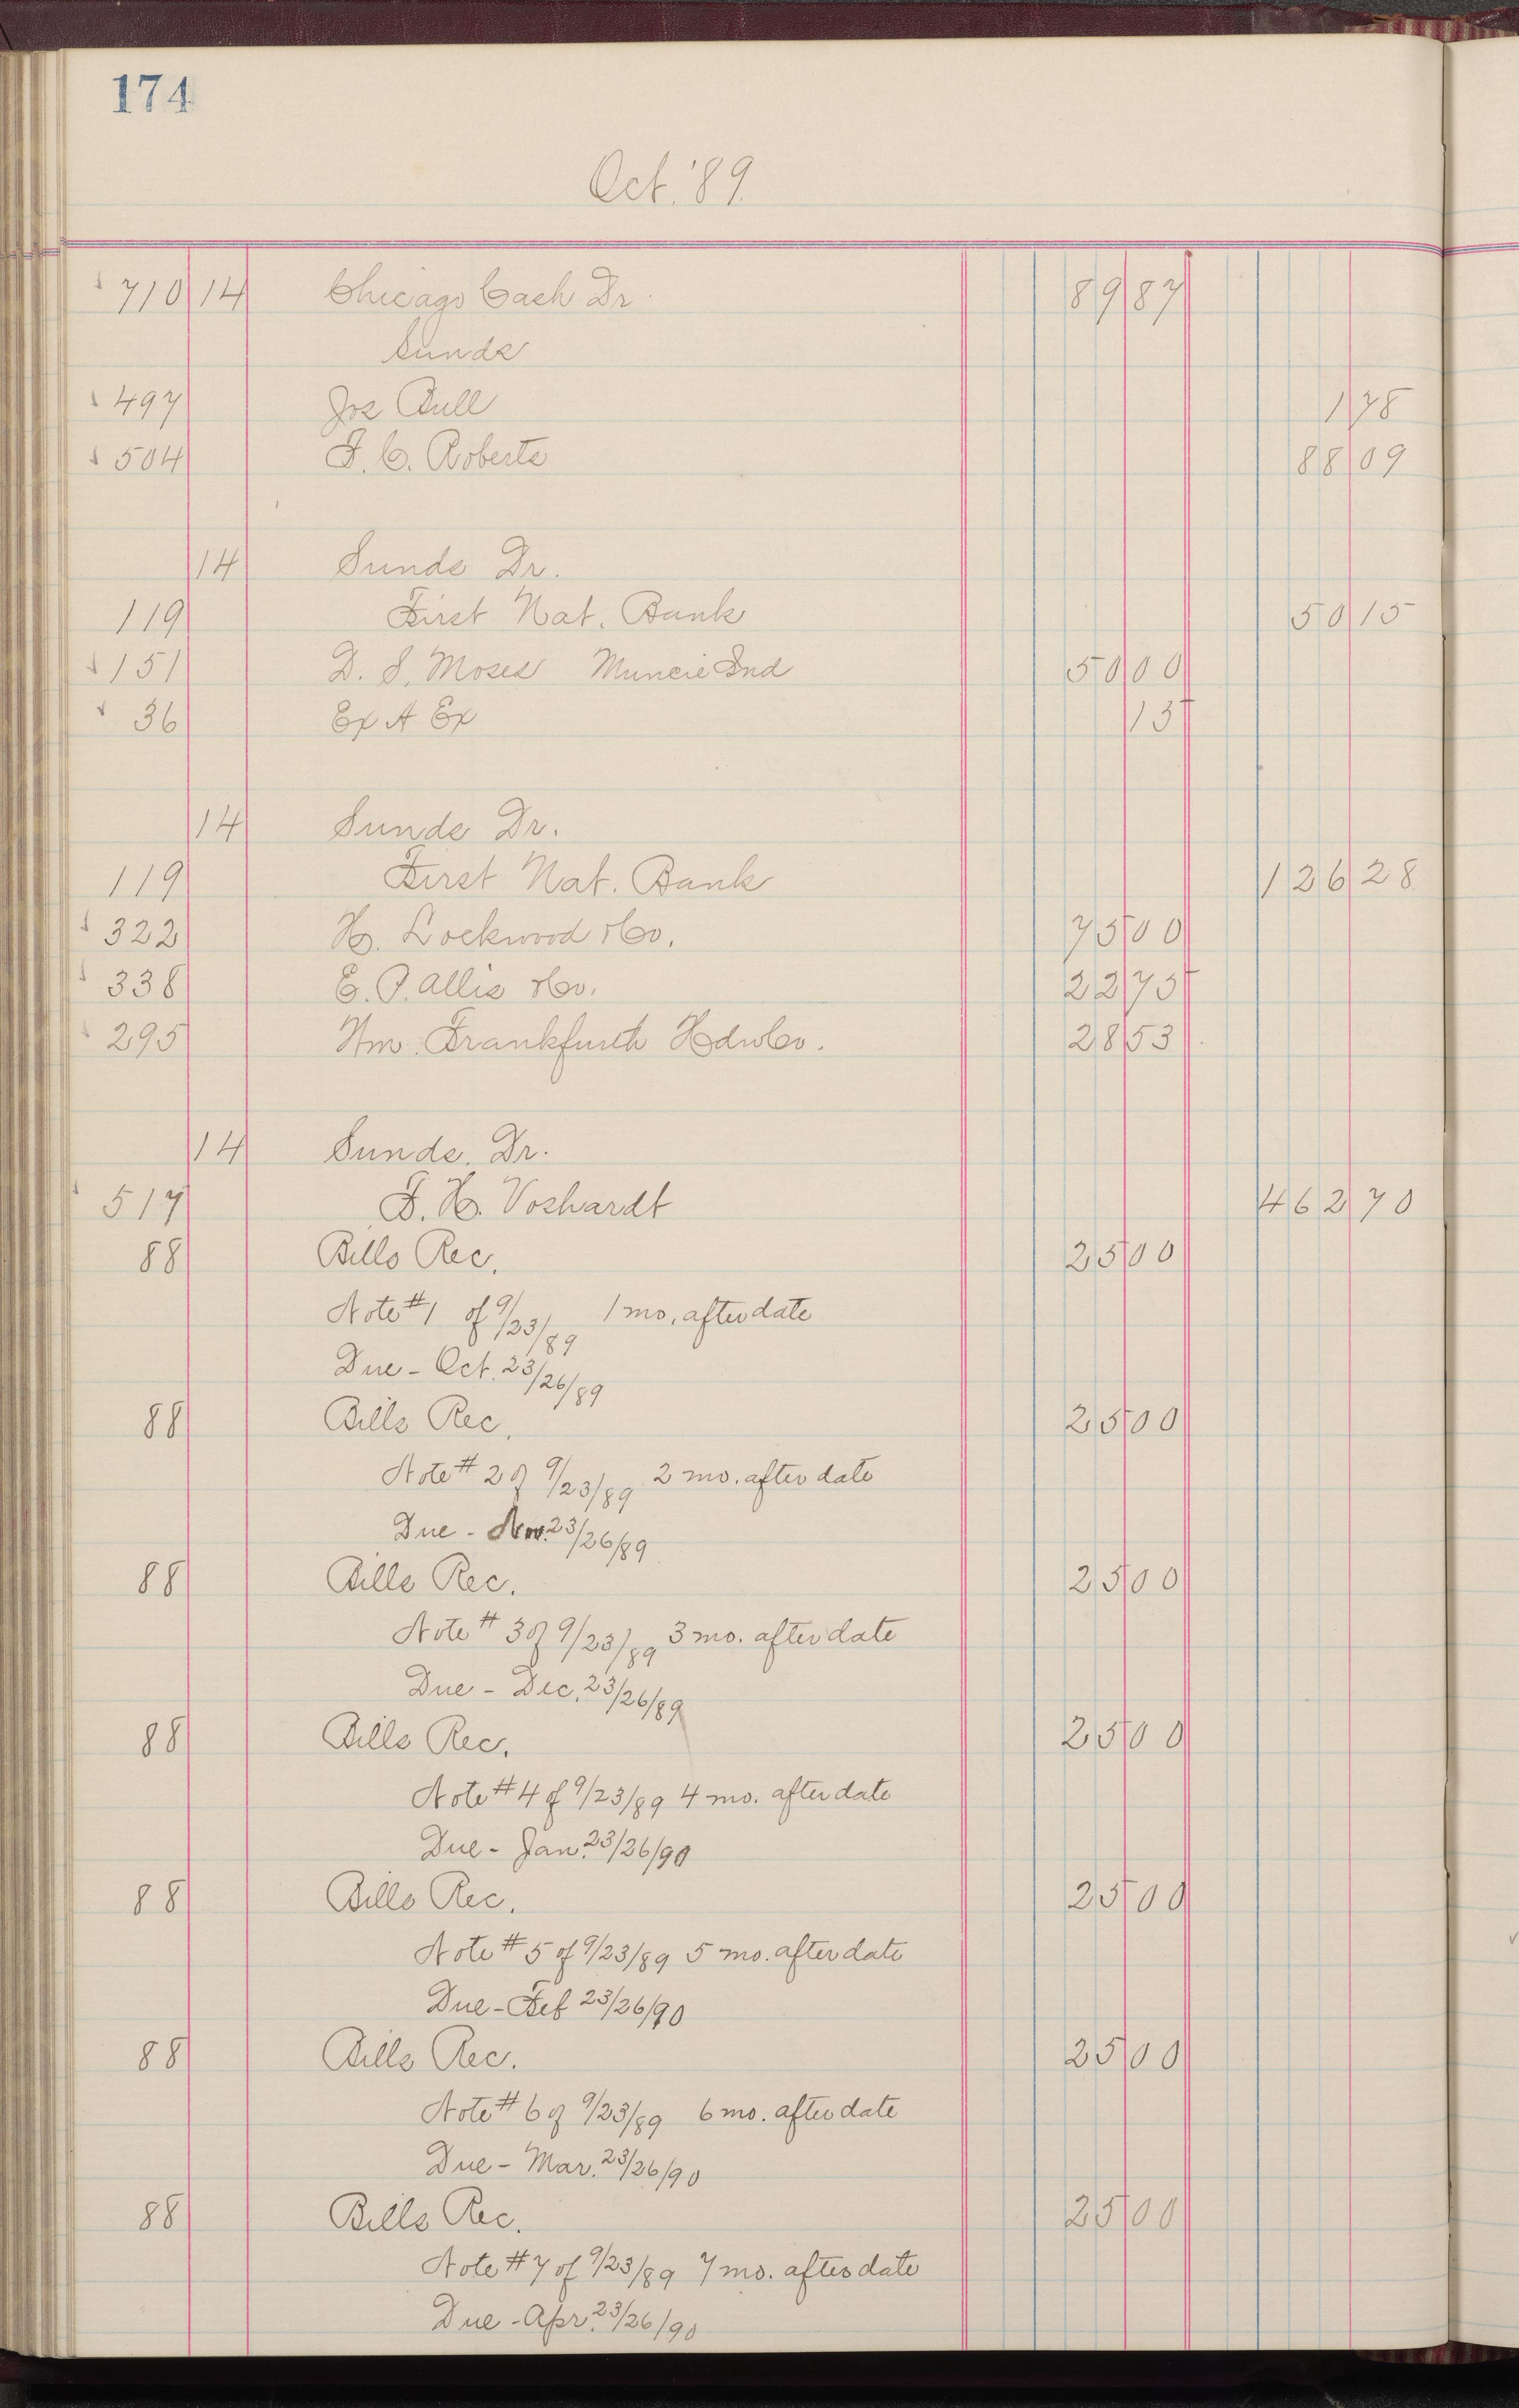 174
Oct. '89.
710 14 Chicago Cash Dr. 89 87
Sunds
497 Jos Bull 1 78
504 F. C. Roberts 88 09
14 Sunds Dr.
119 First Nat. Bank 50 15
151 D. S. Moses Muncie Ind 50 00
36 Ex A Ex 15
14 Sunds Dr.
119 First Nat. Bank 126 28
322 H. Lockwood & Co. 75 00
338 E. P. Allis & Co. 22 75
295 Wm. Frankfurth Hdw Co. 28 53
14 Sunds. Dr.
517 F. H. Voshardt 462 70
88 Bills Rec. 25 00
Note #1 of 9/23/89 1 mo. after date
Due - Oct. 23/26/89
88 Bills Rec. 25 00
Note # 2 of 9/23/89 2 mo. after date
Due - Nov. 23/26/89
88 Bills Rec. 25 00
Note # 3 of 9/23/89 3 mo. after date
Due - Dec. 23/26/89
88 Bills Rec. 25 00
Note #4 of 9/23/89 4 mo. after date
Due - Jan. 23/26/90
88 Bills Rec. 25 00
Note # 5 of 9/23/89 5 mo. after date
Due - Feb 23/26/90
88 Bills Rec. 25 00
Note # 6 of 9/23/89 6 mo. after date
Due - Mar. 23/26/90
88 Bills Rec. 25 00
Note #7 of 9/23/89 7 mo. after date
Due - Apr. 23/26/90